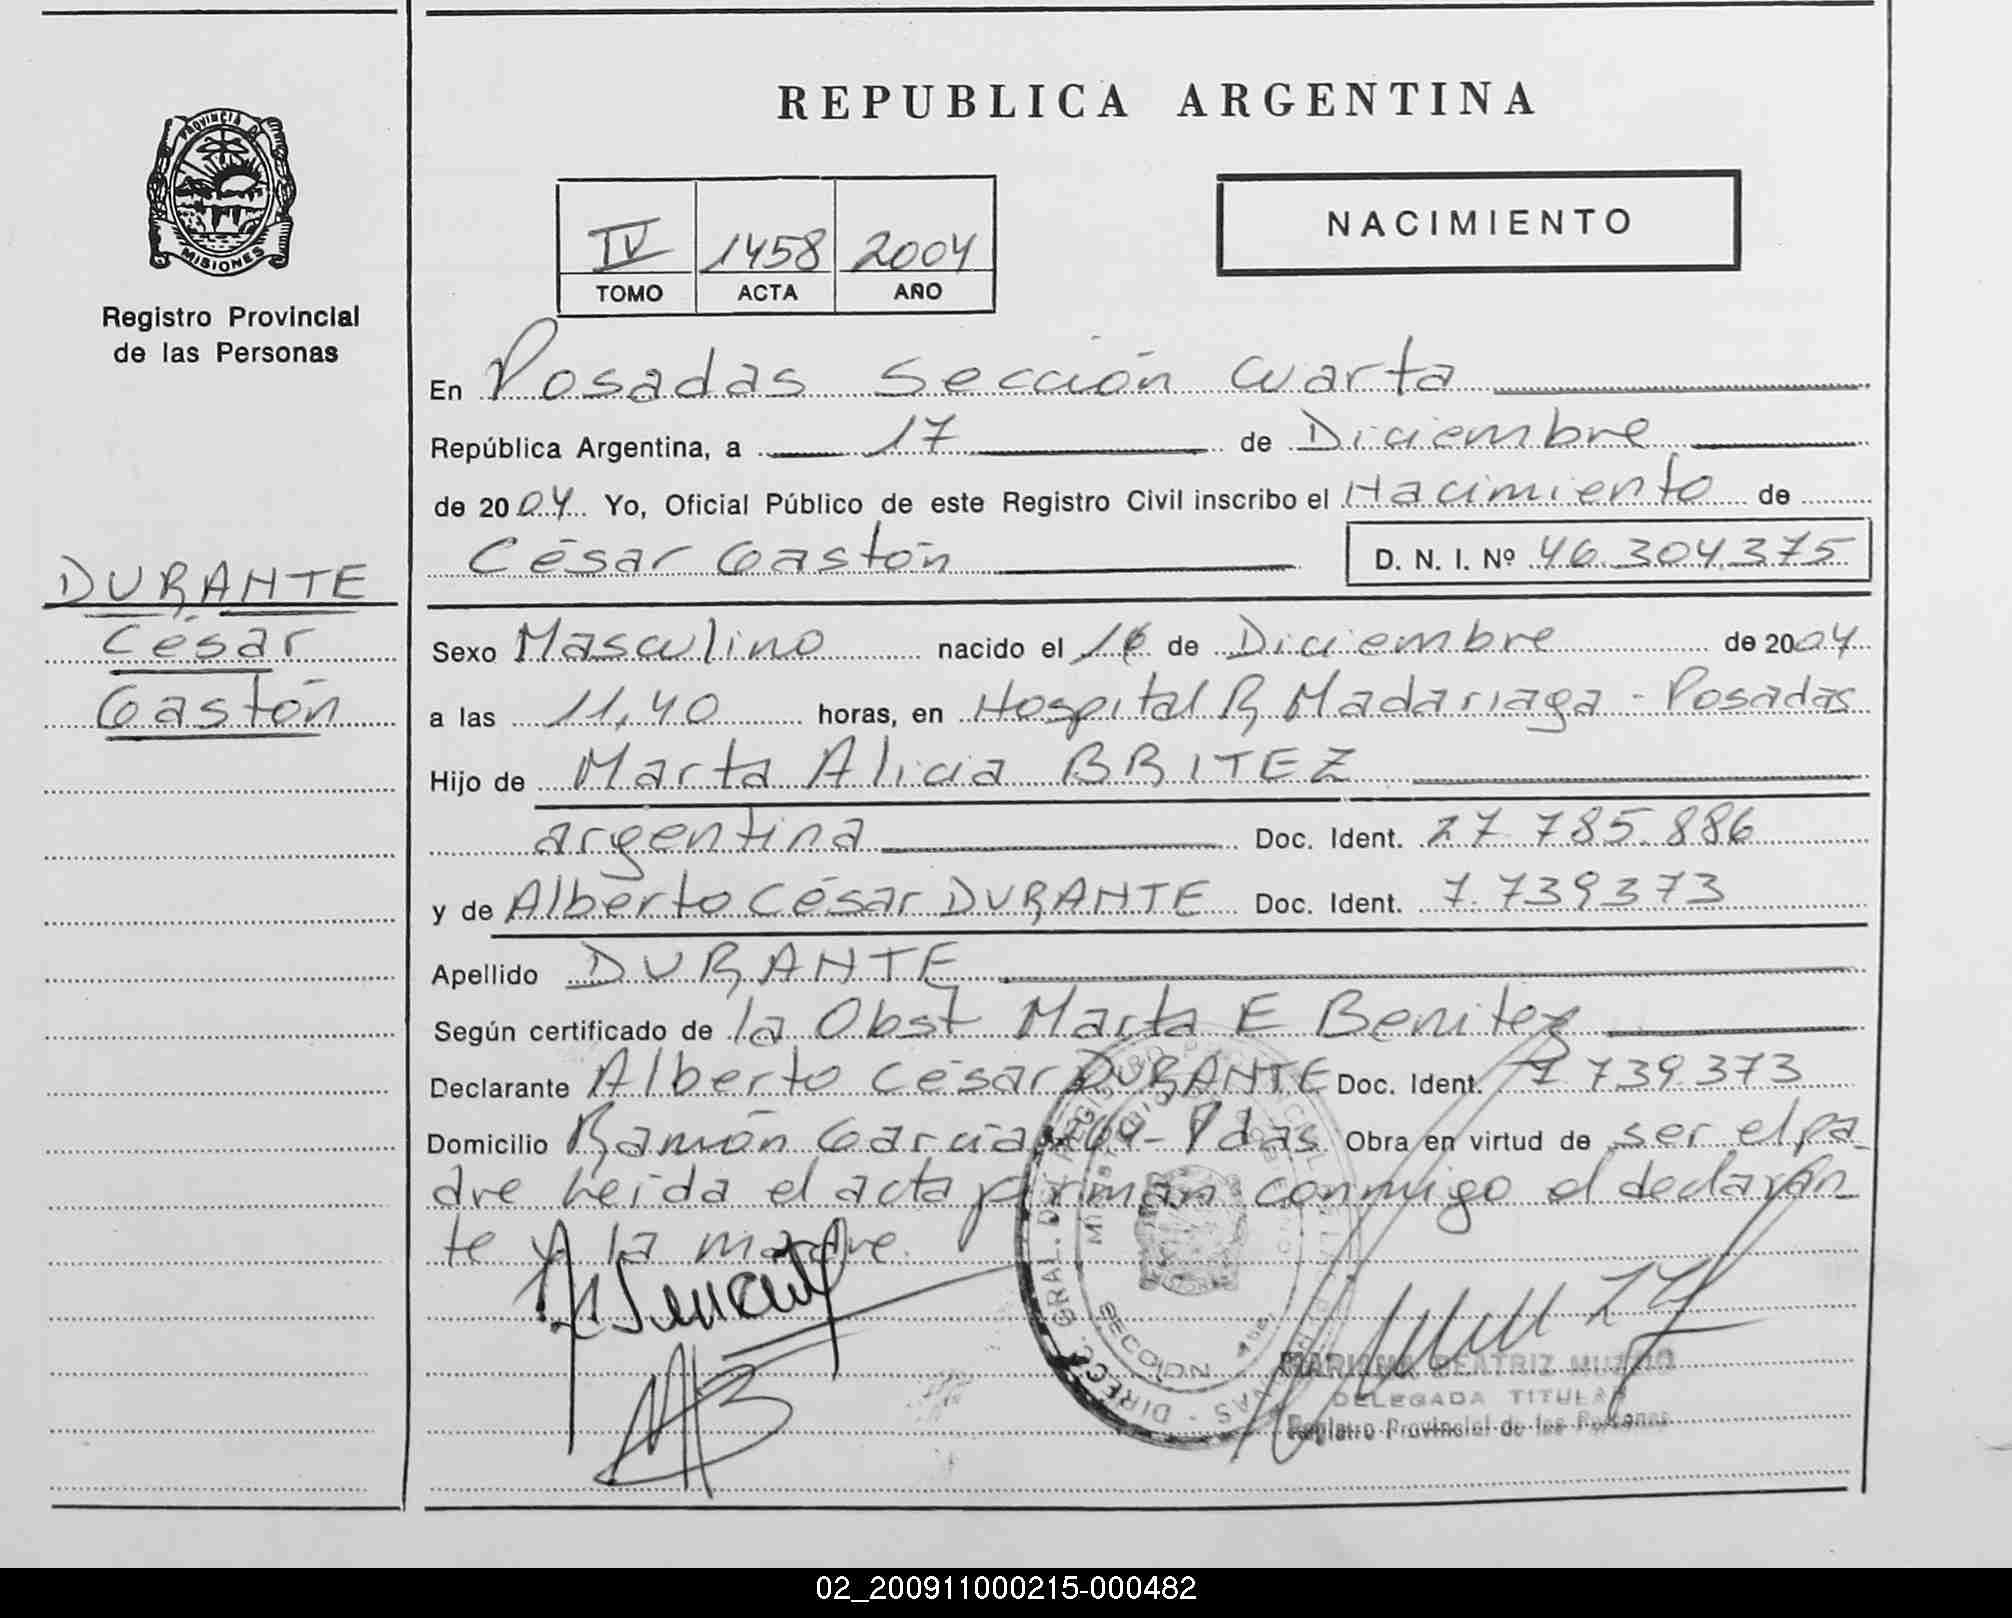 REPUBLICA ARGENTINA
PROVINCIA DE
MISIONES
Registro Provincial
de las Personas
NACIMIENTO
IV 1458 2004
TOMO ACTA AÑO
En Posadas Sección Cuarta
República Argentina, a 17 de Diciembre
de 2004 Yo, Oficial Público de este Registro Civil inscribo el Nacimiento de
César Gastón D. N. I. Nº 46.304.375
DURANTE
César
Gastón
Sexo Masculino nacido el 16 de Diciembre de 2004
a las 11,40 horas, en Hospital R. Madariaga - Posadas
Hijo de Marta Alicia BRITEZ
argentina Doc. Ident. 27.785.886
y de Alberto César DURANTE Doc. Ident. 7.739373
Apellido DURANTE
Según certificado de la Obst Marta E Benitez
Declarante Alberto César DURANTE Doc. Ident. 7 739.373
Domicilio Ramón Garcia - Pdas Obra en virtud de ser el pa-
dre leida el acta firman conmigo el declaran-
te y la madre.
DIRECC. GRAL. DEL REGISTRO PROVINCIAL DE LAS PERSONAS
SECCION
MARIANA BEATRIZ
DELEGADA TITULAR
Registro Provincial de las Personas
02_200911000215-000482